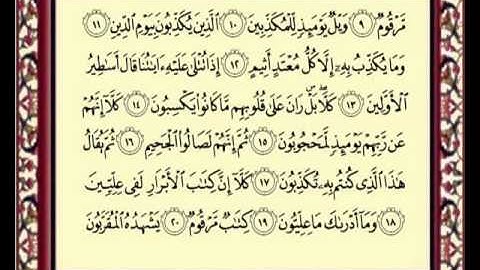 مَّرْقُومٌ ٩ وَيْلٌ يَوْمَئِذٍ لِّلْمُكَذِّبِينَ ١٠ ٱلَّذِينَ يُكَذِّبُونَ بِيَوْمِ ٱلدِّينِ ١١
وَمَا يُكَذِّبُ بِهِۦٓ إِلَّا كُلُّ مُعْتَدٍ أَثِيمٍ ١٢ إِذَا تُتْلَىٰ عَلَيْهِ ءَايَٰتُنَا قَالَ أَسَٰطِيرُ
ٱلْأَوَّلِينَ ١٣ كَلَّا ۖ بَلْ ۜ رَانَ عَلَىٰ قُلُوبِهِم مَّا كَانُوا۟ يَكْسِبُونَ ١٤ كَلَّآ إِنَّهُمْ
عَن رَّبِّهِمْ يَوْمَئِذٍ لَّمَحْجُوبُونَ ١٥ ثُمَّ إِنَّهُمْ لَصَالُوا۟ ٱلْجَحِيمِ ١٦ ثُمَّ يُقَالُ
هَٰذَا ٱلَّذِى كُنتُم بِهِۦ تُكَذِّبُونَ ١٧ كَلَّآ إِنَّ كِتَٰبَ ٱلْأَبْرَارِ لَفِى عِلِّيِّينَ
١٨ وَمَآ أَدْرَىٰكَ مَا عِلِّيُّونَ ١٩ كِتَٰبٌ مَّرْقُومٌ ٢٠ يَشْهَدُهُ ٱلْمُقَرَّبُونَ